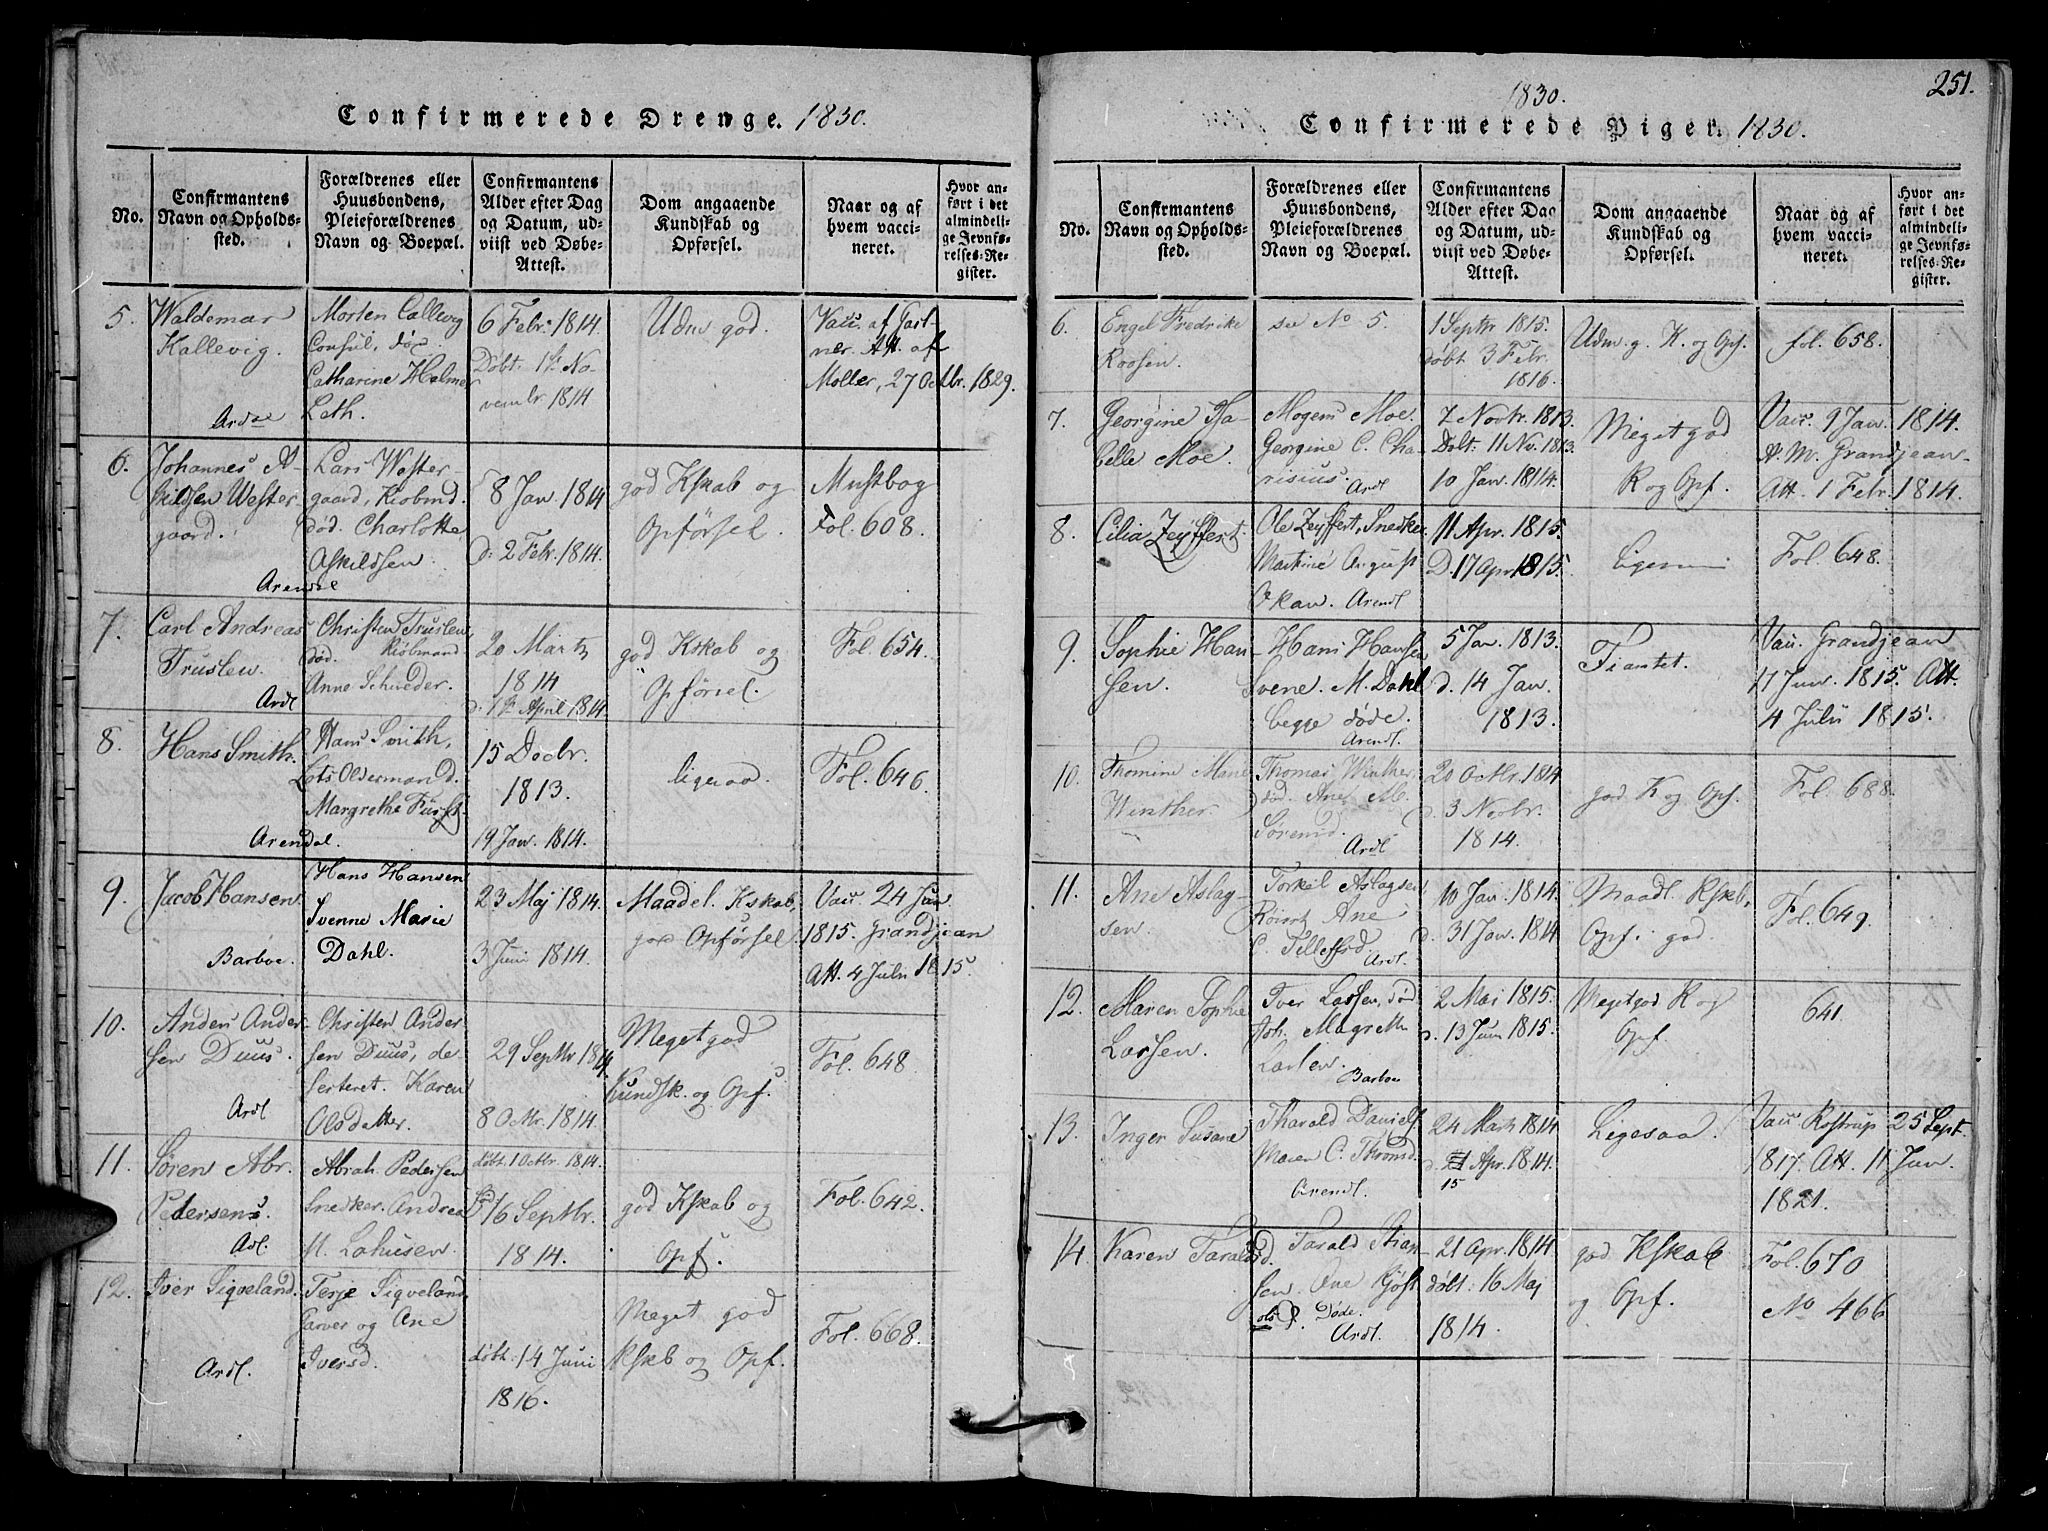 Confirmerede Drenge. 1830.
No.
Confirmantens
Navn og Opholds-
sted.
Forældrenes eller
Huusbondens,
Pleieforældrenes
Navn og Boepæl.
Confirmantens
Alder efter Dag
og Datum, ud-
viist ved Døbe-
Attest.
Dom angaaende
Kundskab og
Opførsel.
Naar og af
hvem vacci-
neret.
Hvor an-
ført i det
almindeli-
ge Jevnfø-
relses-Re-
gister.
5.
Waldemar
Kallevig.
Morten Callevig
Consul, død.
Catharine Helmer
Leth.
6 Febr. 1814.
Døbt: 1ste No-
vembr 1814
Udm god.
Vacc. af Gart-
ner. Att. af
Møller, 27 Octbr. 1829.
6.
Johannes A-
skildsen Wester-
gaard.
Arendal
Lars Wester-
gaard, Kiøbmd.
død. Charlotte
Askildsen
8 Jan. 1814
d: 2 Febr. 1814.
god Kskab og
Opførsel.
Fol. 608.
7.
Carl Andreas
Truslew
Ardl
Christen Truslew
død. Kiøbmand
Anne Schrøder.
20 Martz
1814
d. 1ste April 1814.
god Kskab og
Opførsel.
Fol. 654.
8.
Hans Smith.
Arendal.
Hans Smith,
Lots Oldermand.
Margrethe Fürst
15 Decbr.
1813.
19 Jan. 1814.
ligesaa.
Fol. 646.
9.
Jacob Hansen
Barboe.
Hans Hansen
Svenne Marie
Dahl.
23 Maj 1814.
3 Juni 1814.
Maadel. Kskab,
god Opførsel.
Vacc. 24 Jun
1815. Grandjean
Att. 4 Juli 1815.
10.
Anders Ander-
sen Duus.
Ardl
Christen Ander-
sen Duus, de-
serteret. Karen
Olsdatter.
29 Septbr 1814.
8 Octbr. 1814.
Meget god
Kundsk. og Opf.
Fol. 648
11.
Søren Abr.
Pedersen.
Adl.
Abrah. Pedersen
Snedker. Andrea
M. Lahusen.
døbt. 1 Octbr. 1814.
16 Septbr.
1814.
god Kskab og
Opf.
Fol. 642.
12.
Iver Siqveland.
Ardl.
Terje Siqveland,
Garver og Ane
Iversd.
døbt: 14 Juni
1816.
Meget god
Kskb og Opf.
Fol. 668.
251.
1830.
Confirmerede Piger. 1830.
No.
Confirmantens
Navn og Opholds-
sted.
Forældrenes eller
Huusbondens,
Pleieforældrenes
Navn og Boepæl.
Confirmantens
Alder efter Dag
og Datum, ud-
viist ved Døbe-
Attest.
Dom angaaende
Kundskab og
Opførsel.
Naar og af
hvem vacci-
neret.
Hvor an-
ført i det
almindeli-
ge Jevnfø-
relses-Re-
gister.
6.
Engel Fredrike
Roosen.
see No 5.
1 Septbr 1815.
døbt 3 Febr.
1816.
Udm. g. K. og Opf.
fol. 658.
7.
Georgine Isa-
belle Moe.
Mogens Moe.
Georgine C. Cha-
risius. Ardl
7 Novbr. 1813.
Døbt: 11 Nov. 1813.
10 Jan. 1814.
Meget god
K og Opf.
Vacc. 9 Jan. 1814.
A. M. Grandjean.
Att. 1 Febr. 1814.
8.
Cilia Zeyffert.
Ole Zeyffert, Snedker
Martine August
Arendl
11 Apr. 1815.
D. 17 Apr 1815.
Fol. 648.
9.
Sophie Han-
sen.
Hans Hansen
Svene. M. Dahl
begge døde.
Arendl.
5 Jan. 1813.
d. 14 Jan.
1813.
Vacc. Grandjean
17 Jun. 1815. Att.
4 Julii 1815.
10.
Thomine Marie
Winther.
Thomas Winther
død. Ane M.
Sørensd.
Ardl
20 Octbr. 1814
d. 3 Novbr.
1814.
god K og Opf.
Fol. 688.
11.
Ane Aslag-
sen.
Torkel Aslagsen
Ane
C. Tellefsd.
Ardl.
10 Jan. 1814.
d. 31 Jan. 1814
Maadl. Kskb,
Opf. god.
Fol. 649.
12.
Maren Sophie
Larsen.
Iver Larsen, død
Joh. Magrethe
Larsen.
Barboe
2 Mai 1815.
d. 13 Juni 1815.
Meget god K og
Opf.
641.
13.
Inger Susane
Tharald Daniels.
Maren C. Thomsd.
Arendl.
24 Marts 1814
d. 21 Apr. 1814.
15
Ligesaa.
Vacc Rostrup 25 Sept.
1817. Att. 11 Jun.
1821.
14.
Karen Taraldsd.
Tarald
sen. Ane Kjøst
ols d. Døde.
Ardl.
21 Apr. 1814
døbt: 16 Maj
1814.
god Kskab
og Opf.
Fol. 670
No 466